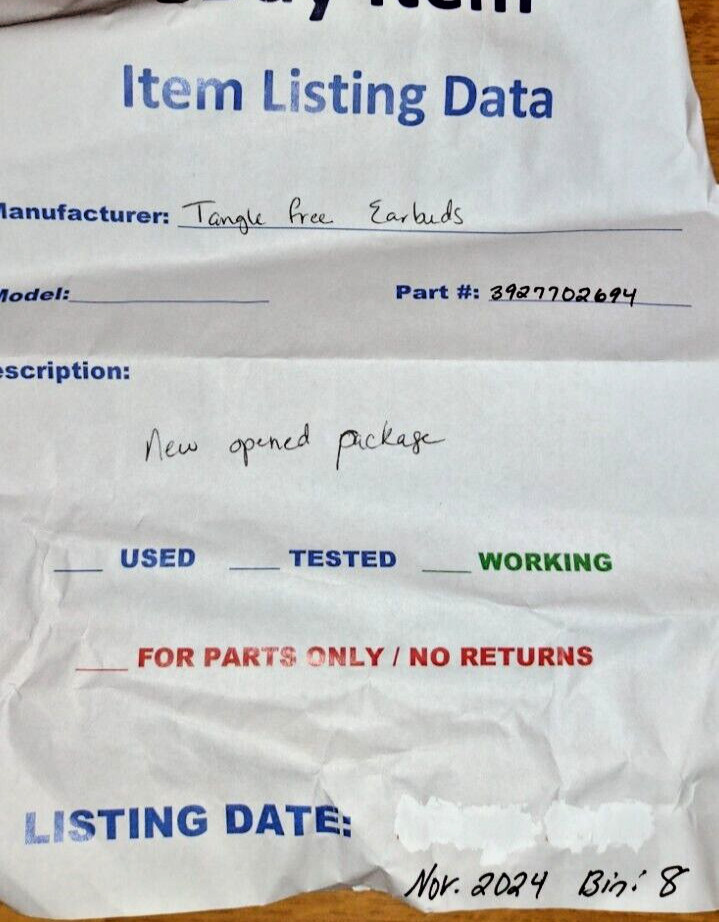 Item
Item Listing Data
Manufacturer: Tangle free Earbuds
Model: Part #: 3927702694
escription:
New opened package
USED TESTED WORKING
FOR PARTS ONLY / NO RETURNS
LISTING DATE:
Nov. 2024 Bin: 8